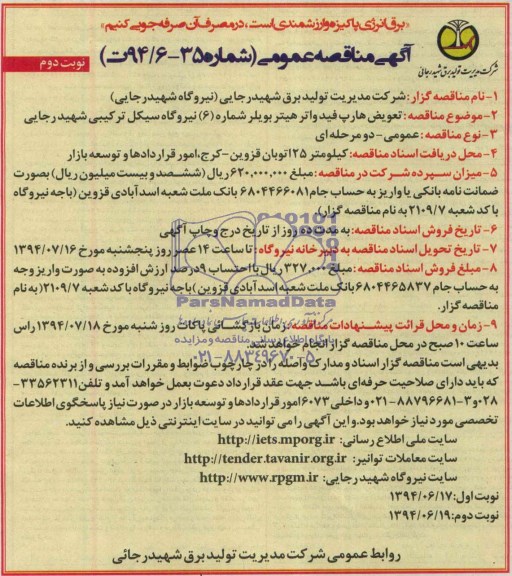 «برق انرژی پاکیزه و ارزشمندی است، در مصرف آن صرفه جویی کنیم»
آگهی مناقصه عمومی (شماره ۳۵-۹۴/۶ت)
نوبت دوم
شرکت مدیریت تولید برق شهید رجایی
۱- نام مناقصه گزار: شرکت مدیریت تولید برق شهید رجایی (نیروگاه شهید رجایی)
۲- موضوع مناقصه: تعویض هارپ فید واتر هیتر بویلر شماره (۶) نیروگاه سیکل ترکیبی شهید رجایی
۳- نوع مناقصه: عمومی- دو مرحله ای
۴- محل دریافت اسناد مناقصه: کیلومتر ۲۵ اتوبان قزوین - کرج، امور قراردادها و توسعه بازار
۵- میزان سپرده شرکت در مناقصه: مبلغ ۶۲۰،۰۰۰،۰۰۰ ریال (ششصد و بیست میلیون ریال) بصورت
ضمانت نامه بانکی یا واریز به حساب جام ۶۸۰۴۴۶۶۰۸۱ بانک ملت شعبه اسدآبادی قزوین (باجه نیروگاه
با کد شعبه ۲۱۰۹/۷ به نام مناقصه گزار)
۶- تاریخ فروش اسناد مناقصه: به مدت ده روز از تاریخ درج و چاپ آگهی
۷- تاریخ تحویل اسناد مناقصه به دبیرخانه نیروگاه: تا ساعت ۱۴ عصر روز پنجشنبه مورخ ۱۳۹۴/۰۷/۱۶
۸- مبلغ فروش اسناد مناقصه: مبلغ ۳۲۷،۰۰۰ ریال با احتساب ۹ درصد ارزش افزوده به صورت واریز وجه
به حساب جام ۶۸۰۴۴۶۵۸۳۷ بانک ملت شعبه اسدآبادی قزوین (باجه نیروگاه با کد شعبه ۲۱۰۹/۷) به نام
مناقصه گزار.
۹- زمان و محل قرائت پیشنهادات مناقصه: زمان بازگشائی پاکات روز شنبه مورخ ۱۳۹۴/۰۷/۱۸ راس
ساعت ۱۰ صبح در محل مناقصه گزار انجام خواهد شد.
بدیهی است مناقصه گزار اسناد و مدارک واصله را در چارچوب ضوابط و مقررات بررسی و از برنده مناقصه
که باید دارای صلاحیت حرفه ای باشد جهت عقد قرارداد دعوت بعمل خواهد آمد و تلفن ۳۳۵۶۲۳۱۱-
۰۲۸ و ۳-۸۸۷۹۶۶۸۱-۰۲۱ و داخلی ۶۰۷۳ امور قراردادها و توسعه بازار در صورت نیاز پاسخگوی اطلاعات
تخصصی مورد نیاز خواهد بود. و این آگهی را می توانید در سایت اینترنتی ذیل مشاهده کنید.
سایت ملی اطلاع رسانی: http://iets.mporg.ir
سایت معاملات توانیر: http://tender.tavanir.org.ir
سایت نیروگاه شهید رجایی: http://www.rpgm.ir
نوبت اول: ۱۳۹۴/۰۶/۱۷
نوبت دوم: ۱۳۹۴/۰۶/۱۹
روابط عمومی شرکت مدیریت تولید برق شهید رجائی
ParsNamadData
پایگاه اطلاع رسانی مناقصه و مزایده
۰۲۱-۸۸۳۴۹۶۷۰-۵